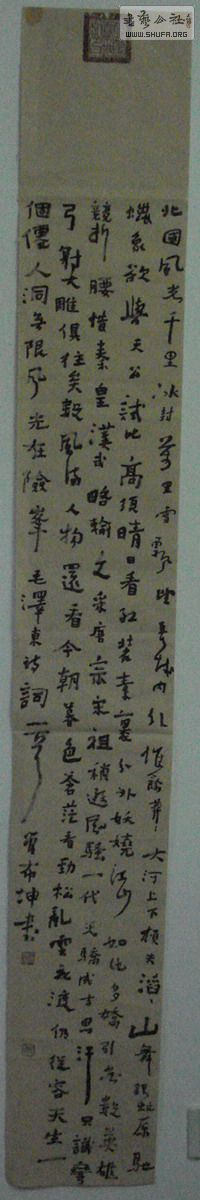 書藝公社
WWW.SHUFA.ORG
北國風光千里冰封萬里雪飄望長城內外惟餘莽莽大河上下頓失滔滔山舞銀蛇原馳
蠟象欲與天公試比高須晴日看紅裝素裹分外妖嬈江山如此多嬌引無數英雄
競折腰惜秦皇漢武略輸文采唐宗宋祖稍遜風騷一代天驕成吉思汗只識彎
弓射大雕俱往矣數風流人物還看今朝暮色蒼茫看勁松亂雲飛渡仍從容天生一
個僊人洞無限風光在險峯毛澤東詩詞 布坤書